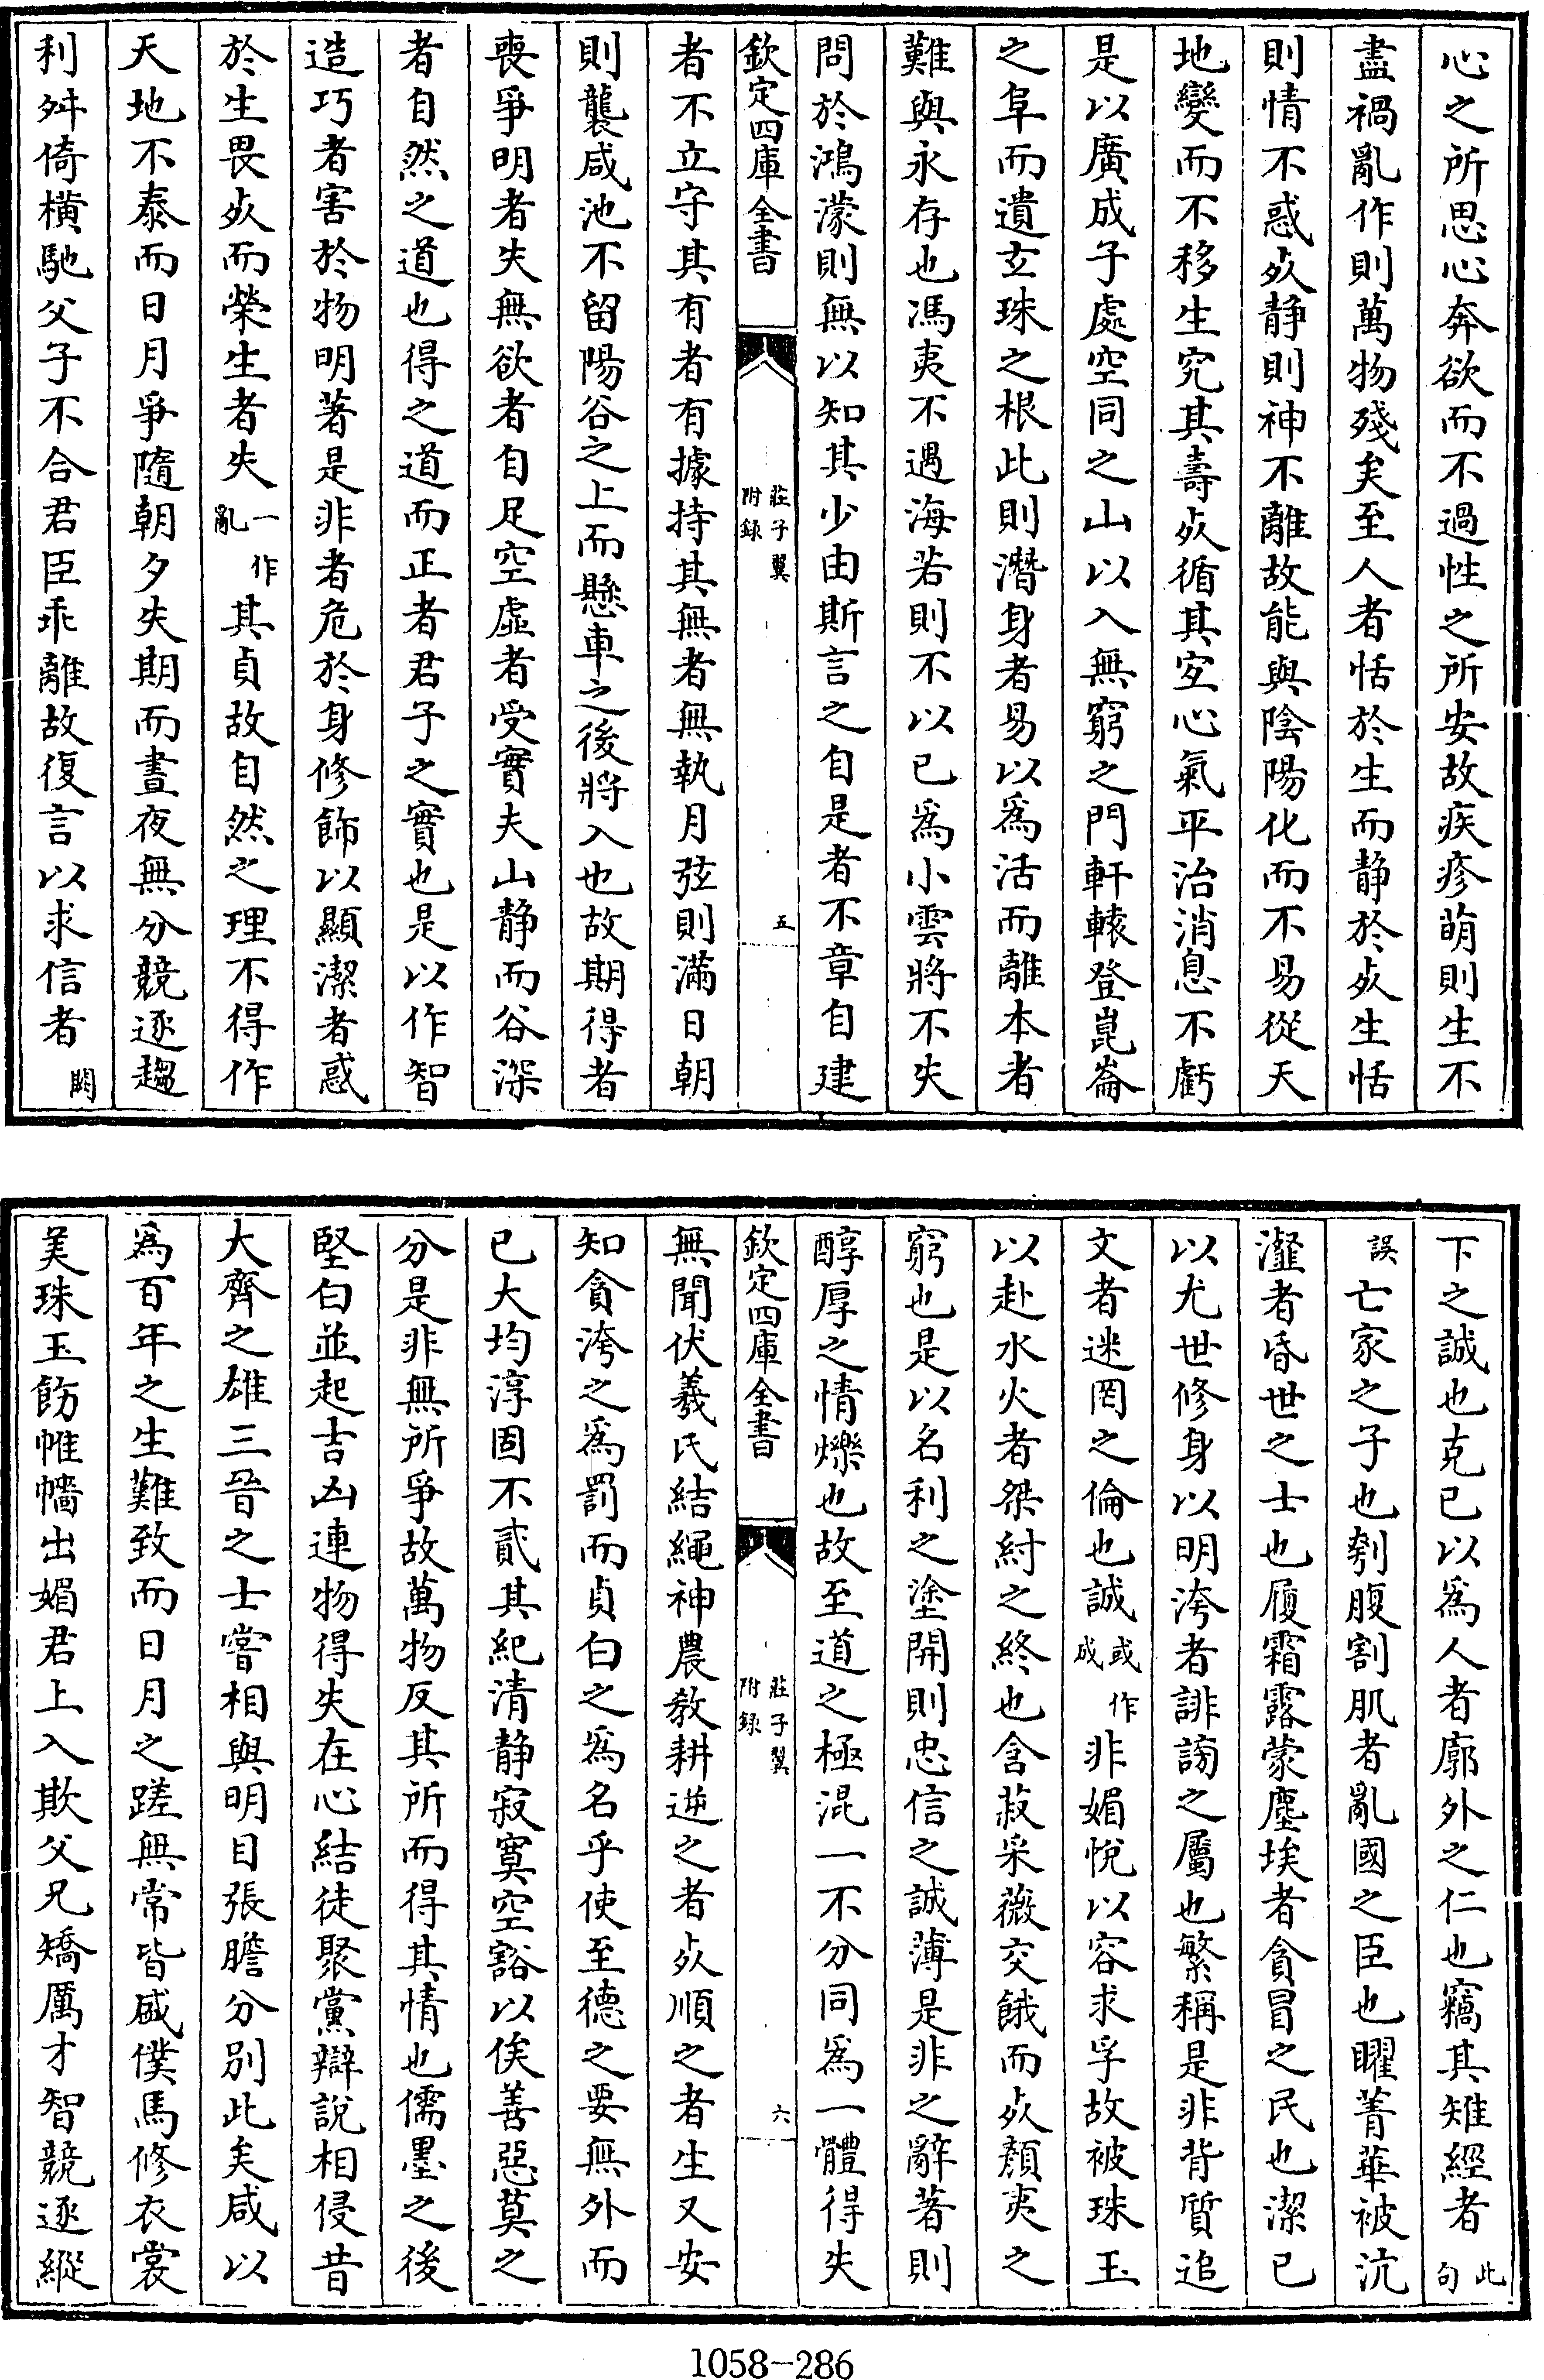 心之所思心奔欲而不過性之所安故疾疹萌則生不
盡禍亂作則萬物殘矣至人者恬於生而静於㱔生恬
則情不惑㱔静則神不離故能與陰陽化而不易從天
地變而不移生究其壽㱔循其宐心氣平治消息不虧
是以廣成子處空同之山以入無窮之門軒轅登崑崙
之阜而遺玄珠之根此則潛身者易以爲活而離本者
難與永存也馮夷不遇海若則不以已爲小雲將不失
問於鴻濛則無以知其少由斯言之自是者不章自建
欽定四庫全書
莊子翼
附録
五
者不立守其有者有據持其無者無執月弦則滿日朝
則襲咸池不留陽谷之上而懸車之後將入也故期得者
喪爭明者失無欲者自足空虛者受實夫山静而谷深
者自然之道也得之道而正者君子之實也是以作智
造巧者害於物明著是非者危於身修飾以顯潔者惑
於生畏㱔而榮生者失一作亂其貞故自然之理不得作
天地不泰而日月爭隨朝夕失期而晝夜無分競逐趨
利舛倚橫馳父子不合君臣乖離故復言以求信者闕
下之誠也克己以爲人者廓外之仁也竊其雉經者此句
誤亡家之子也刳腹割肌者亂國之臣也曜菁華被沆
瀣者昏世之士也履霜露蒙塵埃者貪冒之民也潔已
以尤世修身以明洿者誹謗之屬也繁稱是非背質追
文者迷罔之倫也誠或作成非媚悅以容求孚故被珠玉
以赴水火者桀紂之終也含菽采薇交餓而㱔顏夷之
窮也是以名利之塗開則忠信之誠薄是非之辭著則
醇厚之情爍也故至道之極混一不分同爲一體得失
欽定四庫全書
莊子翼
附録
六
無聞伏羲氏結繩神農教耕逆之者㱔順之者生又安
知貪洿之爲罰而貞白之爲名乎使至德之要無外而
已大均淳固不貳其紀清静寂寞空豁以俟善惡莫之
分是非無所爭故萬物反其所而得其情也儒墨之後
堅白並起吉凶連物得失在心結徒聚黨辯說相侵昔
大齊之雄三晉之士嘗相與明目張膽分別此矣咸以
爲百年之生難致而日月之蹉無常皆盛僕馬修衣裳
美珠玉飭帷牆出媚君上入欺父兄矯厲才智競逐縱
1058-286